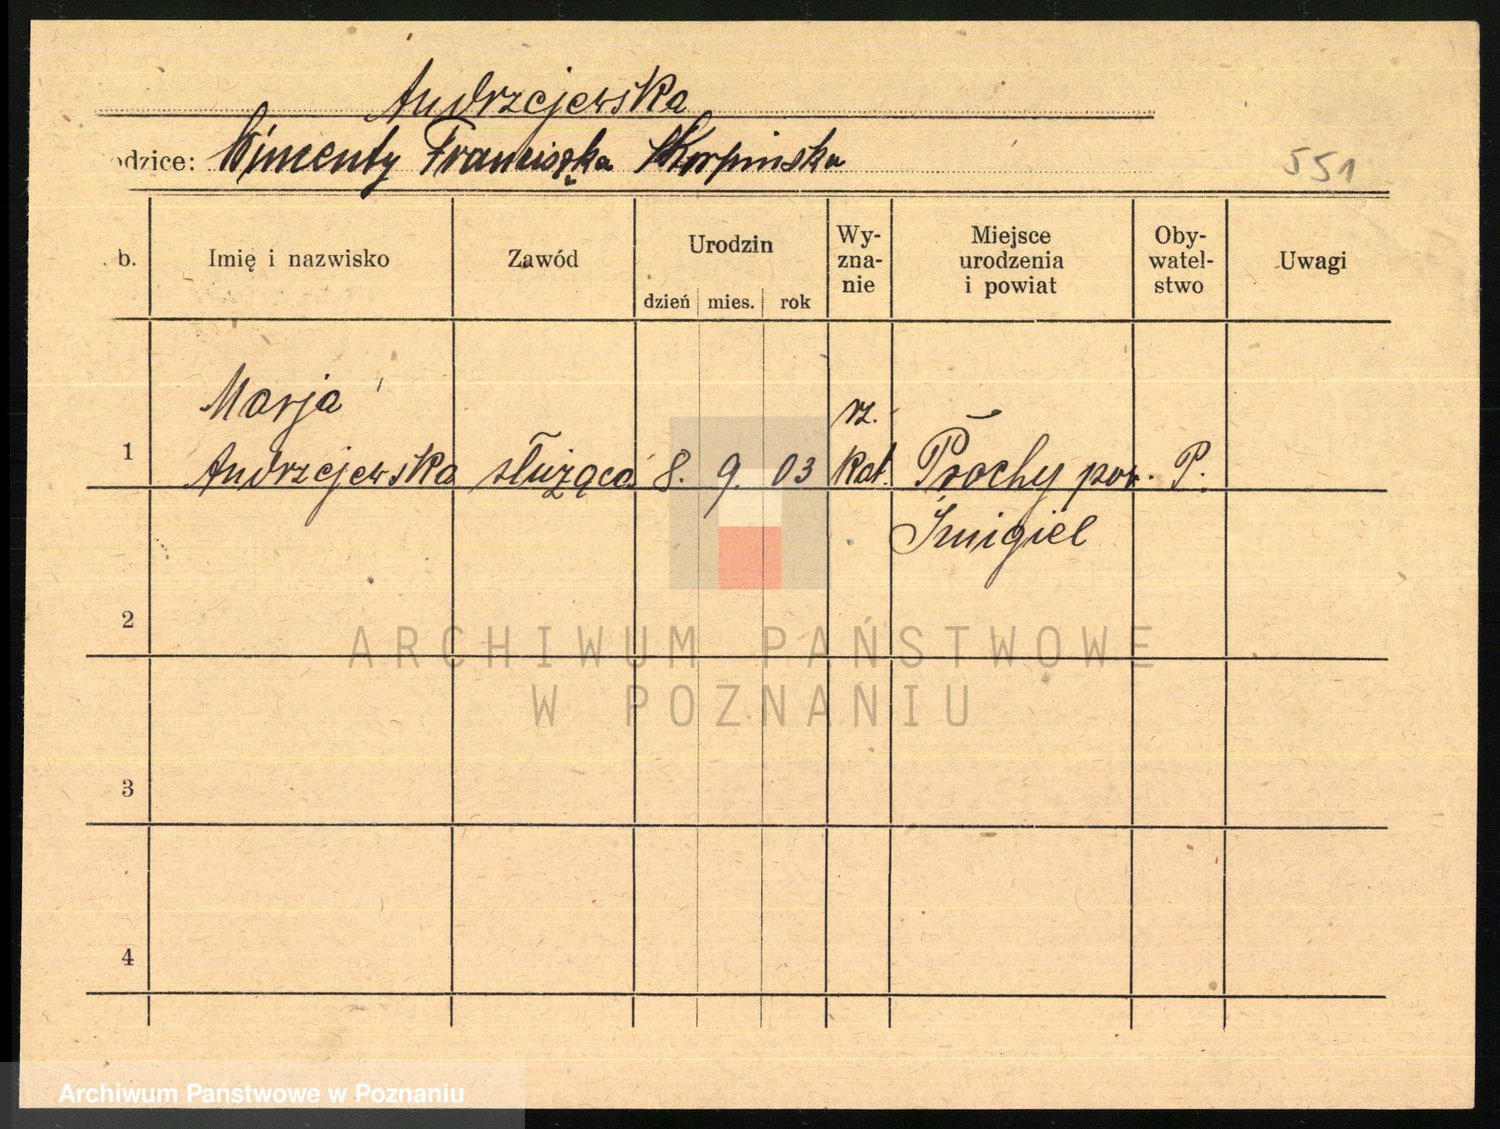 Andrzejewska
odzice: Wincenty Franciszka Skorpinska
551
b.
Imię i nazwisko
Zawód
Urodzin
dzień mies. rok
Wy-
zna-
nie
Miejsce
urodzenia
i powiat
Oby-
watel-
stwo
Uwagi
1
Marja
Andrzejewska
służąca
8. 9. 03
rz.
kat.
Prochy pow.
Śmigiel
P.
2
3
4
ARCHIWUM PAŃSTWOWE
W POZNANIU
Archiwum Państwowe w Poznaniu